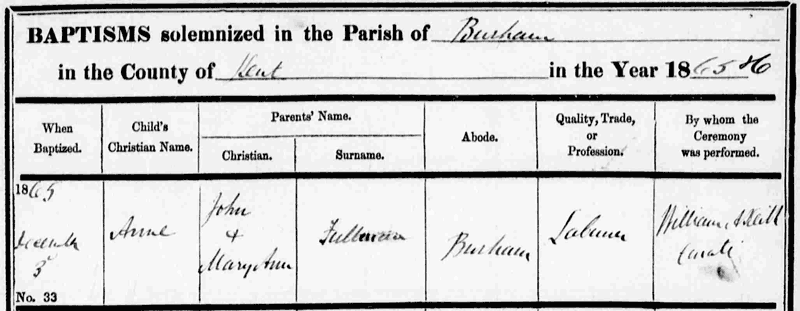 BAPTISMS solemnized in the Parish of Burham
in the County of Kent in the Year 1865 & 6
When Baptized.
Child's Christian Name.
Parents' Name.
Christian.
Surname.
Abode.
Quality, Trade, or Profession.
By whom the Ceremony was performed.
1865
December
3
No. 33
Anne
John
&
Mary Ann
Burham
Labourer
William A Hill
Curate